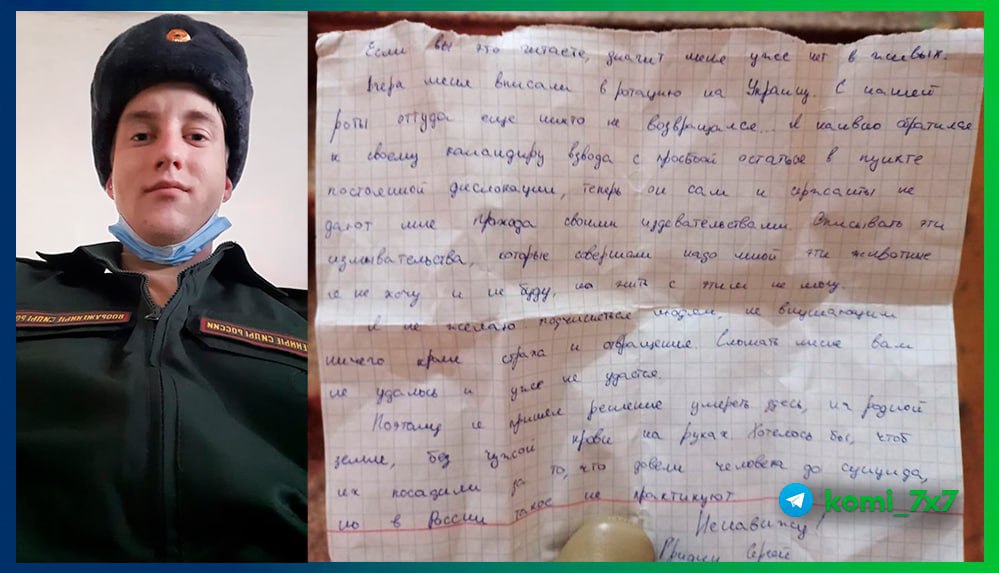 ВООРУЖЕННЫЕ СИЛЫ
ЕННЫЕ СИЛЫ РОССИИ
Если вы это читаете, значит меня уже нет в живых.
Вчера меня вписали в ротацию на Украину. С нашей
роты оттуда еще никто не возвращался... Я наивно обратился
к своему командиру взвода с просьбой остаться в пункте
постоянной дислокации, теперь он сам и сержанты не
дают мне прохода своими издевательствами. Описывать эти
измывательства, которые совершали надо мной эти животные
я не хочу и не буду, но жить с этим не могу.
Я не желаю подчиняться людям, не внушающим
ничего кроме страха и отвращения. Сломать меня вам
не удалось и уже не удастся.
Поэтому я принял решение умереть здесь, на родной
земле, без чужой крови на руках. Хотелось бы, чтоб
их посадили за то, что довели человека до суицида,
но в России такое не практикуют
Ненавижу!
Сергей
komi_7x7